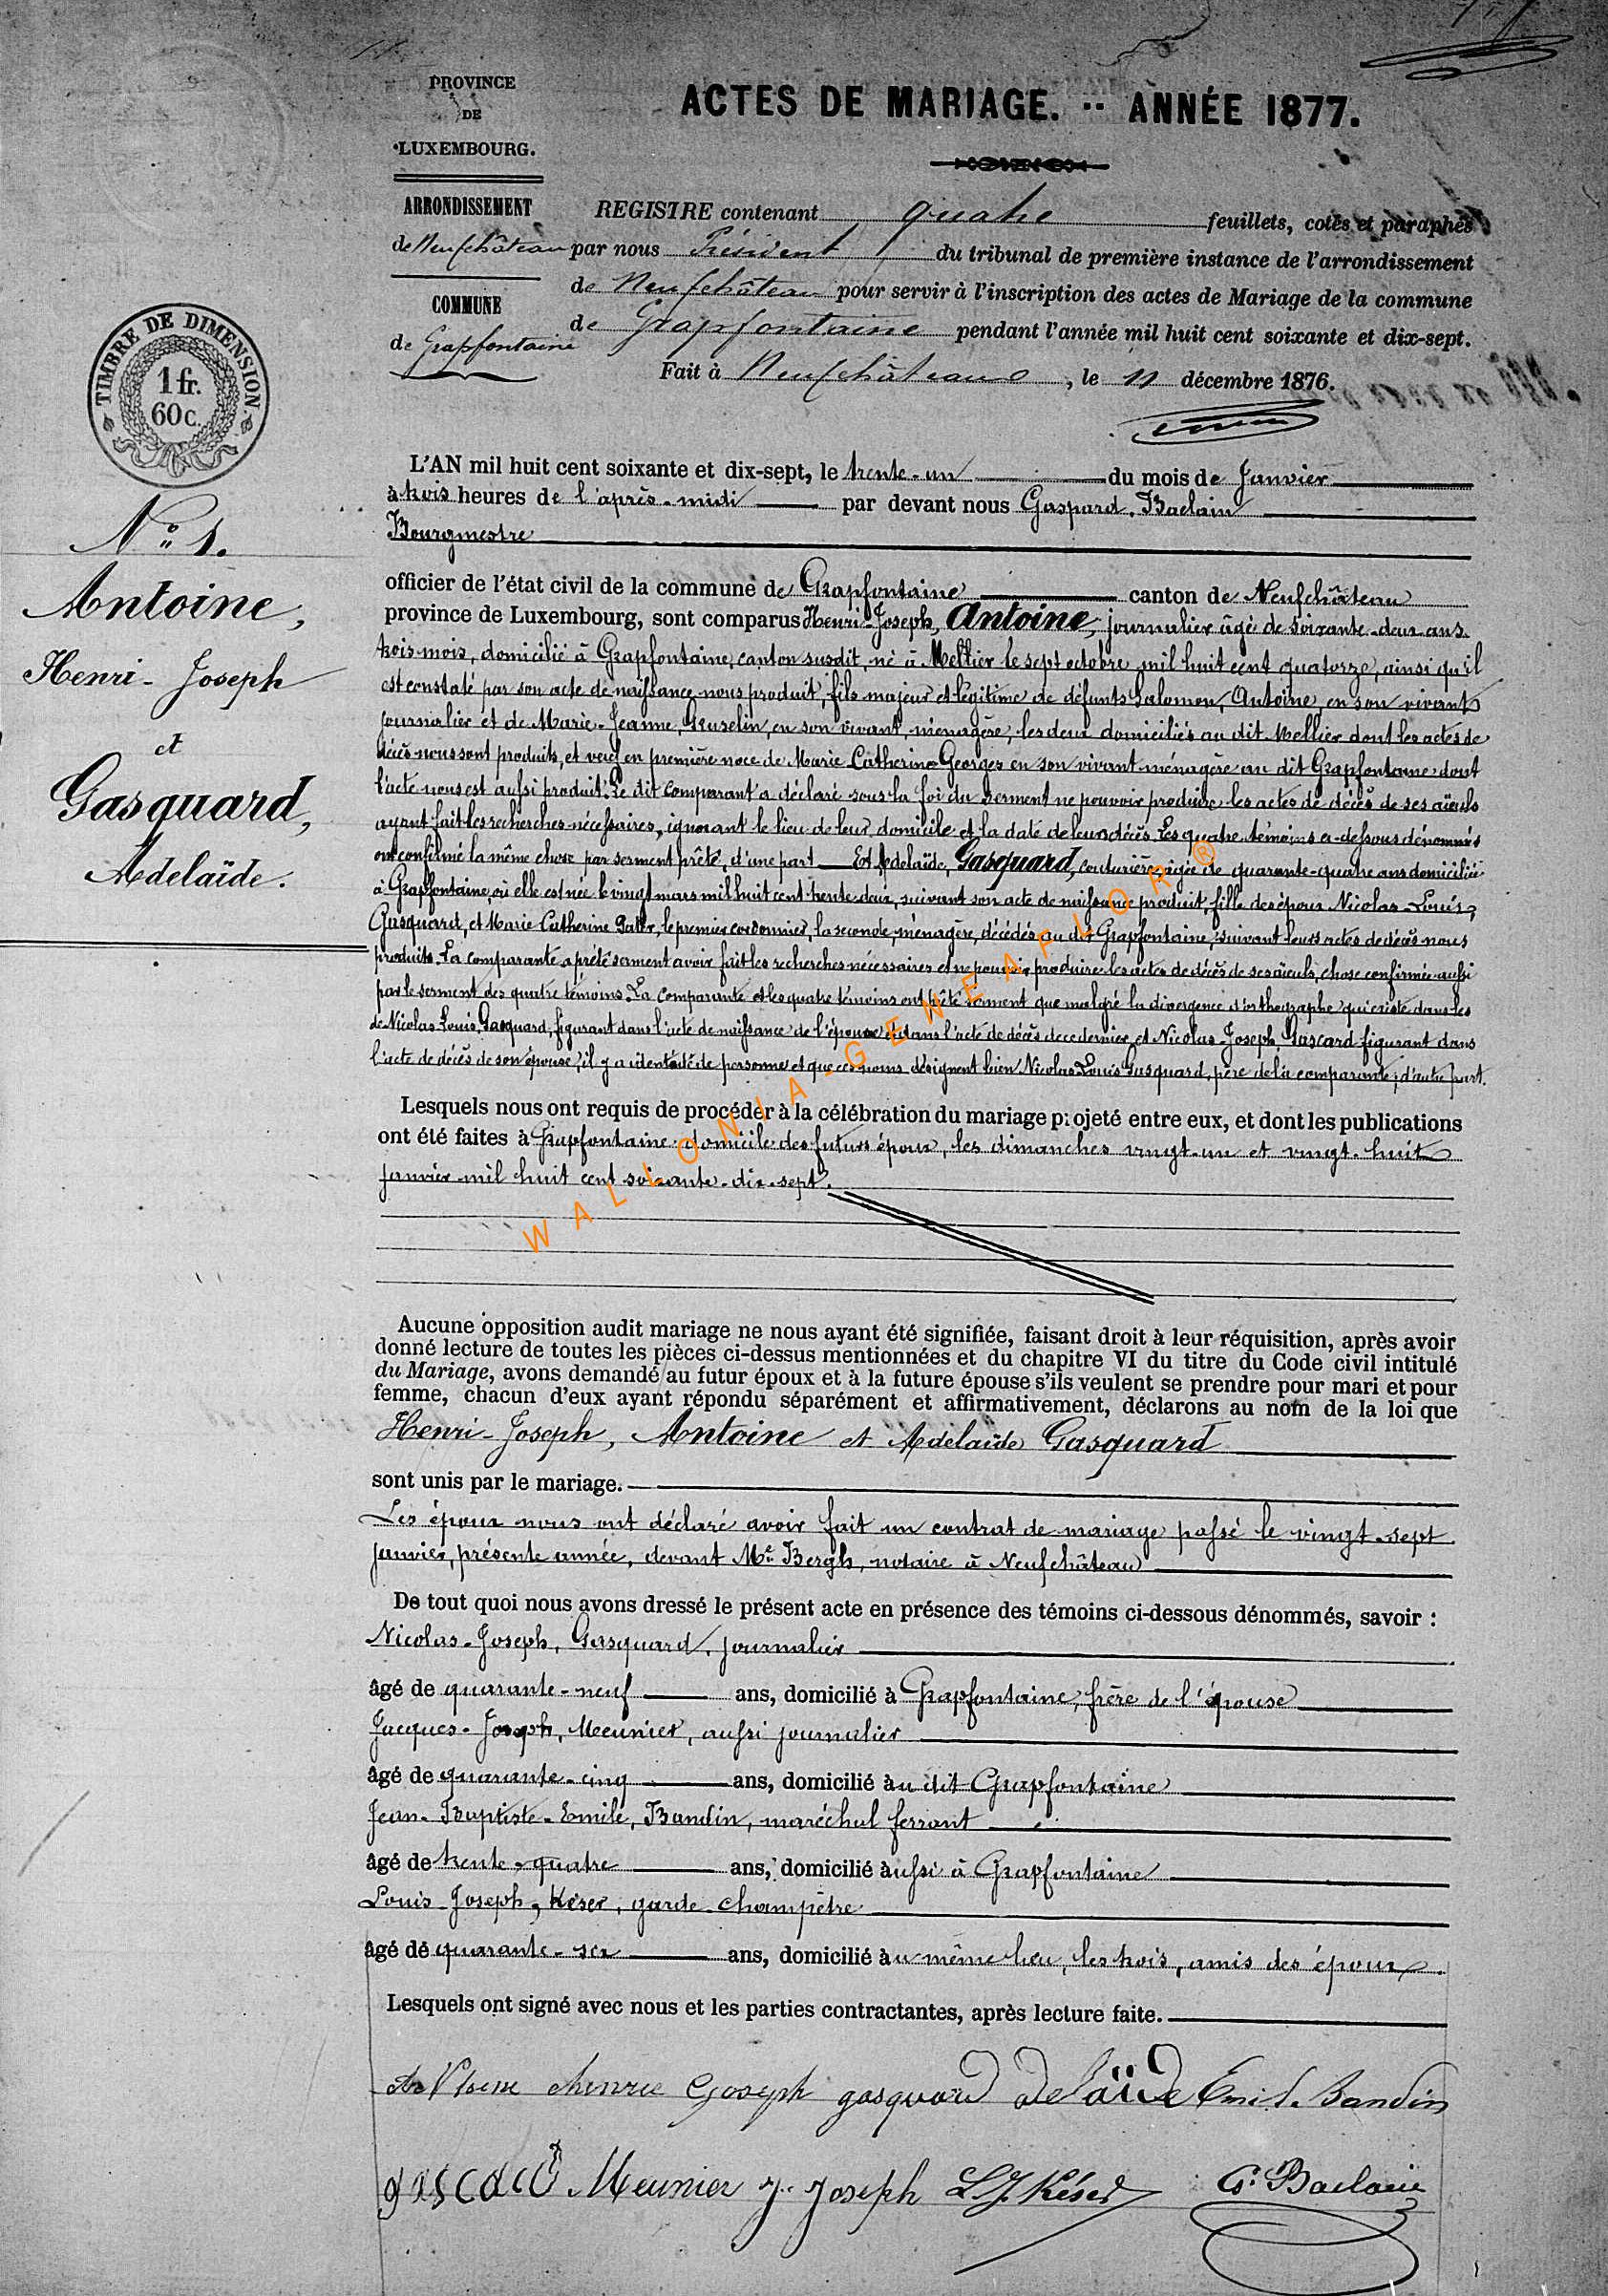 PROVINCE
DE
LUXEMBOURG.
ACTES DE MARIAGE. -- ANNÉE 1877.
ARRONDISSEMENT
de Neufchâteau
COMMUNE
de Grapfontaine
REGISTRE contenant quatre feuillets, cotés et paraphés
par nous Président du tribunal de première instance de l'arrondissement
de Neufchâteau pour servir à l'inscription des actes de Mariage de la commune
de Grapfontaine pendant l'année mil huit cent soixante et dix-sept.
Fait à Neufchâteau, le 11 décembre 1876.
TIMBRE DE DIMENSION
1 fr.
60 c.
N° 1.
Antoine,
Henri-Joseph
et
Gasquard,
Adelaïde.
L'AN mil huit cent soixante et dix-sept, le trente-un du mois de Janvier
à trois heures de l'après-midi par devant nous Gaspard, Baclain
Bourgmestre
officier de l'état civil de la commune de Grapfontaine canton de Neufchâteau
province de Luxembourg, sont comparus Henri-Joseph, Antoine, journalier âgé de soixante-deux ans
trois mois, domicilié à Grapfontaine, canton susdit, né à Mellier le sept octobre mil huit cent quatorze, ainsi qu'il
est constaté par son acte de naissance nous produit, fils majeur et légitime de défunts Salomon, Antoine, en son vivant
journalier et de Marie-Jeanne, Gruselin, en son vivant, ménagère, les deux domiciliés au dit Mellier dont les actes de
décès nous sont produits, et veuf en première noce de Marie Catherine Georges en son vivant ménagère au dit Grapfontaine dont
l'acte nous est aussi produit. Le dit comparant a déclaré sous la foi du serment ne pouvoir produire les actes de décès de ses aïeuls
ayant fait les recherches nécessaires, ignorant le lieu de leur domicile et la date de leurs décès. Les quatre témoins ci-dessous dénommés
ont confirmé la même chose par serment prêté, d'une part Et Adelaïde, Gasquard, couturière âgée de quarante-quatre ans domiciliée
à Grapfontaine, où elle est née le vingt mars mil huit cent trente-deux, suivant son acte de naissance produit, fille des époux Nicolas-Louis,
Gasquard, et Marie Catherine le premier cordonnier, la seconde, ménagère, décédés au dit Grapfontaine, suivant leurs actes de décès nous
produits. La comparante a prêté serment avoir fait les recherches nécessaires et ne pouvoir produire les actes de décès de ses aïeuls, chose confirmée aussi
par le serment des quatre témoins. La comparante et les quatre témoins ont prêté serment que malgré la divergence d'orthographe qui existe dans les
de Nicolas Louis, Gasquard, figurant dans l'acte de naissance de l'épouse et dans l'acte de décès de ce dernier, et Nicolas-Joseph Gascard figurant dans
l'acte de décès de son épouse, il y a identité de personne et que ces noms désignent bien Nicolas Louis Gasquard, père de la comparante, d'autre part.
Lesquels nous ont requis de procéder à la célébration du mariage projeté entre eux, et dont les publications
ont été faites à Grapfontaine domicile des futurs époux, les dimanches vingt-un et vingt-huit
janvier mil huit cent soixante-dix-sept.
Aucune opposition audit mariage ne nous ayant été signifiée, faisant droit à leur réquisition, après avoir
donné lecture de toutes les pièces ci-dessus mentionnées et du chapitre VI du titre du Code civil intitulé
du Mariage, avons demandé au futur époux et à la future épouse s'ils veulent se prendre pour mari et pour
femme, chacun d'eux ayant répondu séparément et affirmativement, déclarons au nom de la loi que
Henri-Joseph, Antoine et Adelaïde Gasquard
sont unis par le mariage.
Les époux nous ont déclaré avoir fait un contrat de mariage passé le vingt-sept
janvier, présente année, devant Me Bergh, notaire à Neufchâteau
De tout quoi nous avons dressé le présent acte en présence des témoins ci-dessous dénommés, savoir :
Nicolas-Joseph, Gasquard, journalier
âgé de quarante-neuf ans, domicilié à Grapfontaine, frère de l'épouse
Jacques-Joseph, Meunier, aussi journalier
âgé de quarante-cinq ans, domicilié au dit Grapfontaine
Jean-Baptiste-Emile, Bandin, maréchal ferrant
âgé de trente-quatre ans, domicilié aussi à Grapfontaine
Louis-Joseph, Késer, garde-champêtre
âgé de quarante-six ans, domicilié au même lieu, les trois, amis des époux.
Lesquels ont signé avec nous et les parties contractantes, après lecture faite.
Antoine henrie Joseph gasquard adelaïde Emile Bandin
gascard Meunier J. Joseph L J Késer G. Baclain
WALLONIA-GENEAFLOR ®